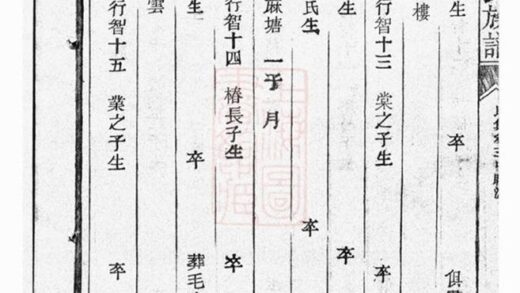 族譜
生 卒 俱
樓
行智十三 棠之子生 卒
生 卒
氏生 卒
麻塘 一子 月
行智十四 椿長子生 卒
生 卒 葬毛
雲
行智十五 業之子生 卒